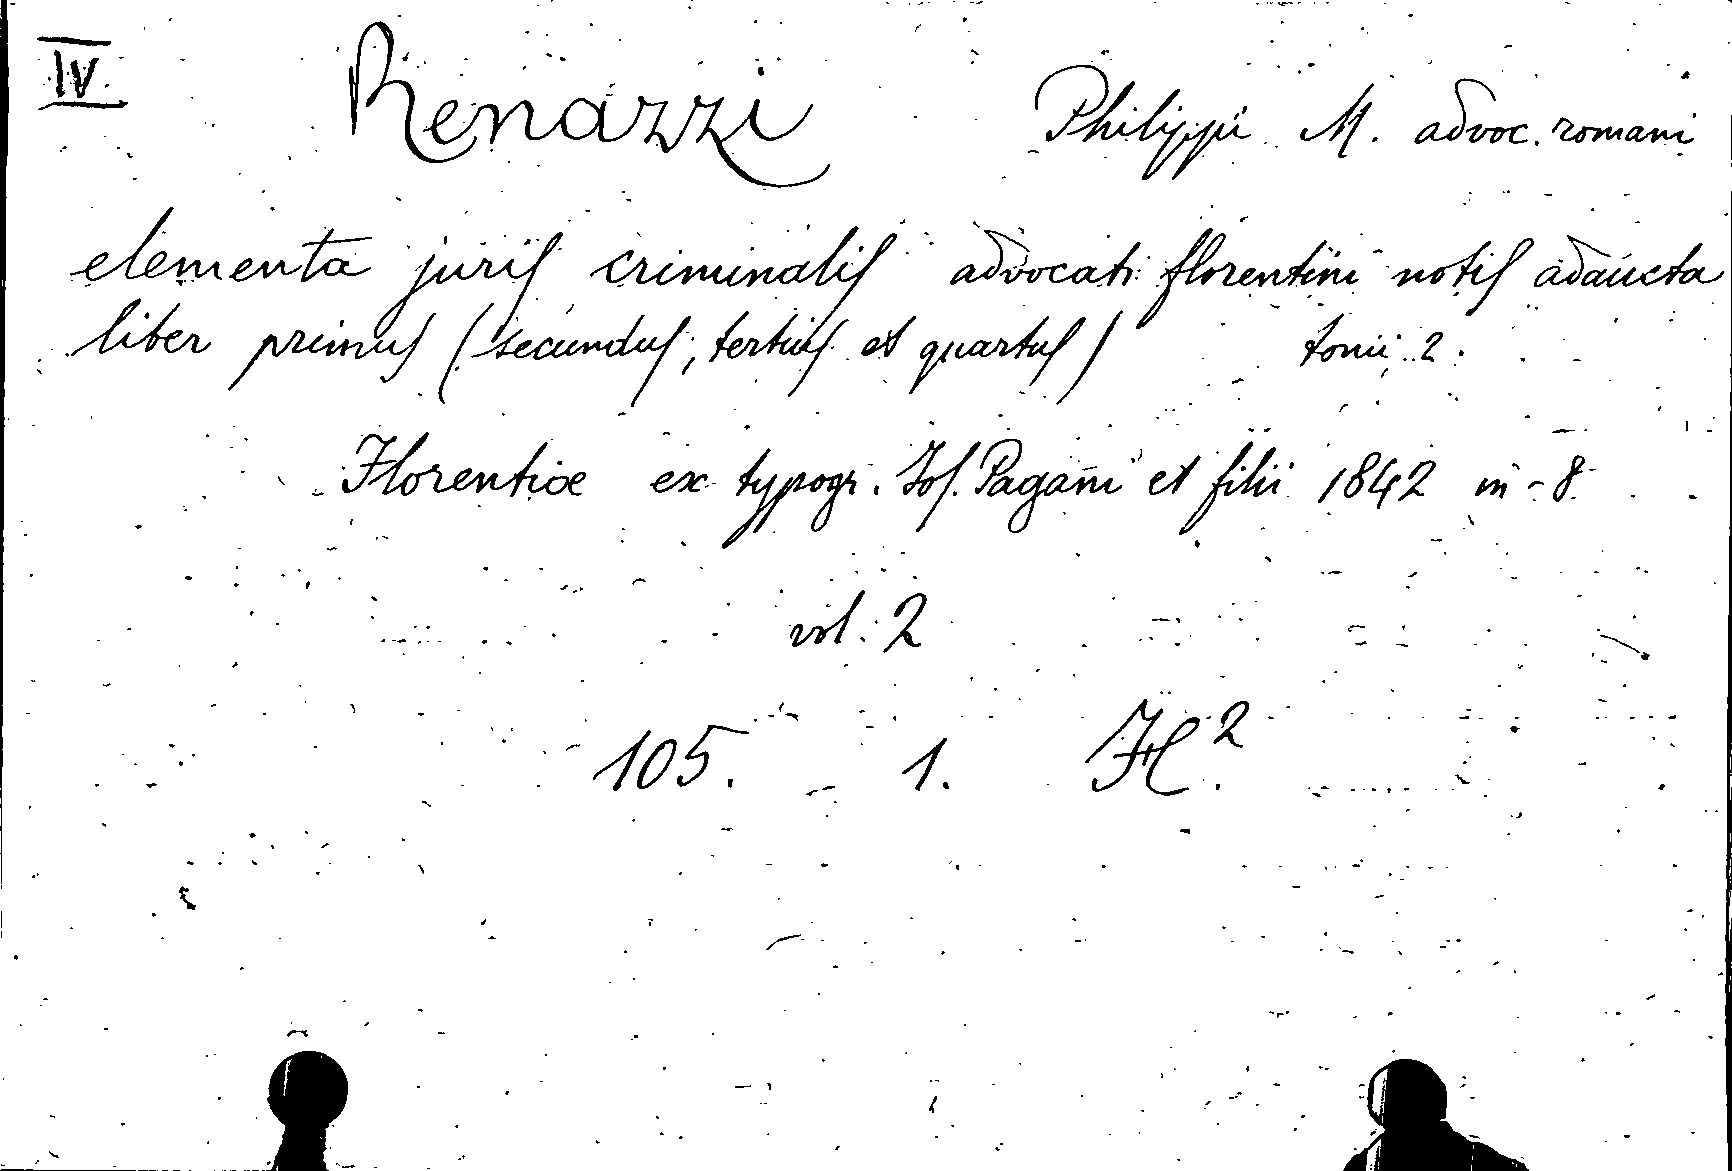 IV Renazzi Philippi M. advoc. romani
elementa juris criminalis advocati florentini notis adaucta
liber primus (secundus, tertius et quartus) tomi 2.
Florentiae ex typogr. Jos. Pagani et filii 1842 in-8
vol. 2
105. 1. H.2